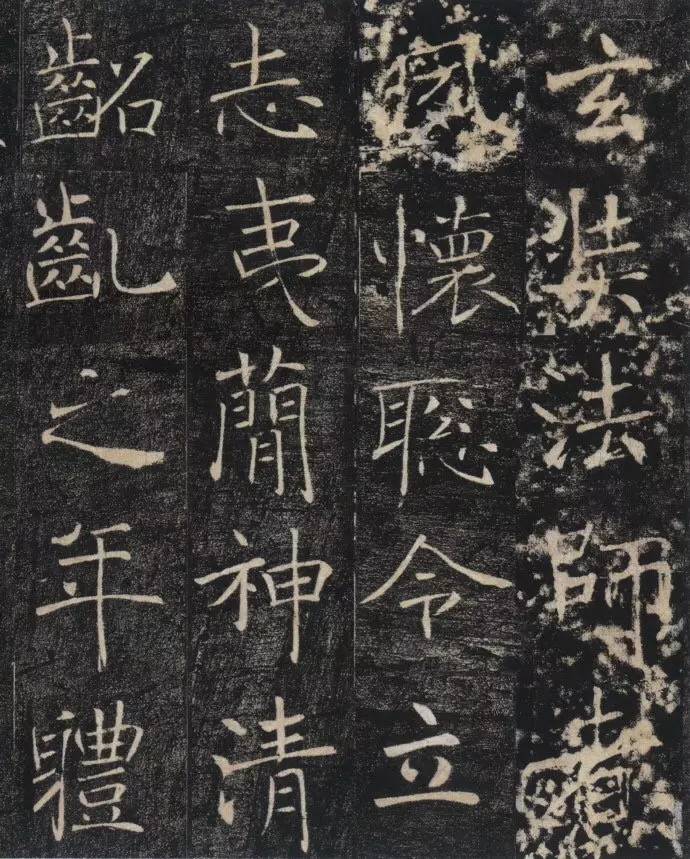 玄奘法師者
夙懷聰令立
志夷蕳神清
齠齔之年體